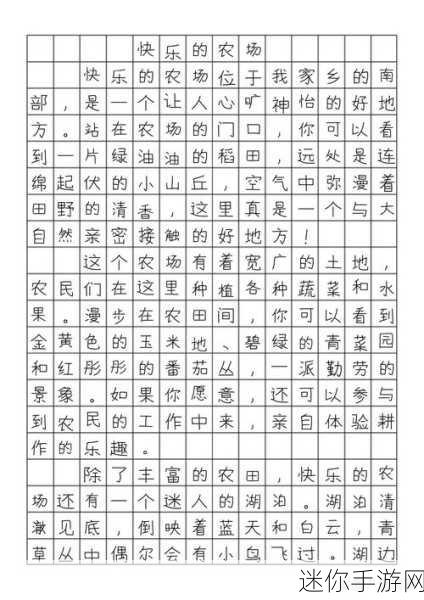 快乐的农场
快乐的农场位于我家乡的南
部，是一个让人心旷神怡的好地
方。站在农场的门口，你可以看
到一片绿油油的稻田，远处是连
绵起伏的小山丘，空气中弥漫着
田野的清香，这里真是一个与大
自然亲密接触的好地方！
这个农场有着宽广的土地，
农民们在这里种植各种蔬菜和水
果。漫步在农田间，你可以看到
金黄色的玉米地、碧绿的青菜园
和红彤彤的番茄丛，一派勤劳的
景象。如果你愿意，还可以参与
到农民的工作中来，亲自体验耕
作的乐趣。
除了丰富的农田，快乐的农
场还有一个迷人的湖泊。湖泊清
澈见底，倒映着蓝天和白云，青
草丛中偶尔会有小鸟飞过。湖边
迷你手游网